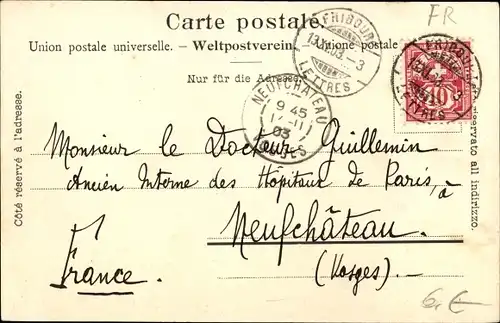 Carte postale.
FR
Union postale universelle. – Weltpostverein. – Unione postale
Nur für die Adresse.
FRIBOURG
LETTRES
FRIBOURG
LETTRES
10
NEUFCHATEAU
9 45
03
VOSGES
Côté réservé à l'adresse.
Monsieur le Docteur Guillemin
Ancien Interne des Hôpitaux de Paris, à
Neufchâteau.
France.
(Vosges).
riservato all indirizzo.
6,-€